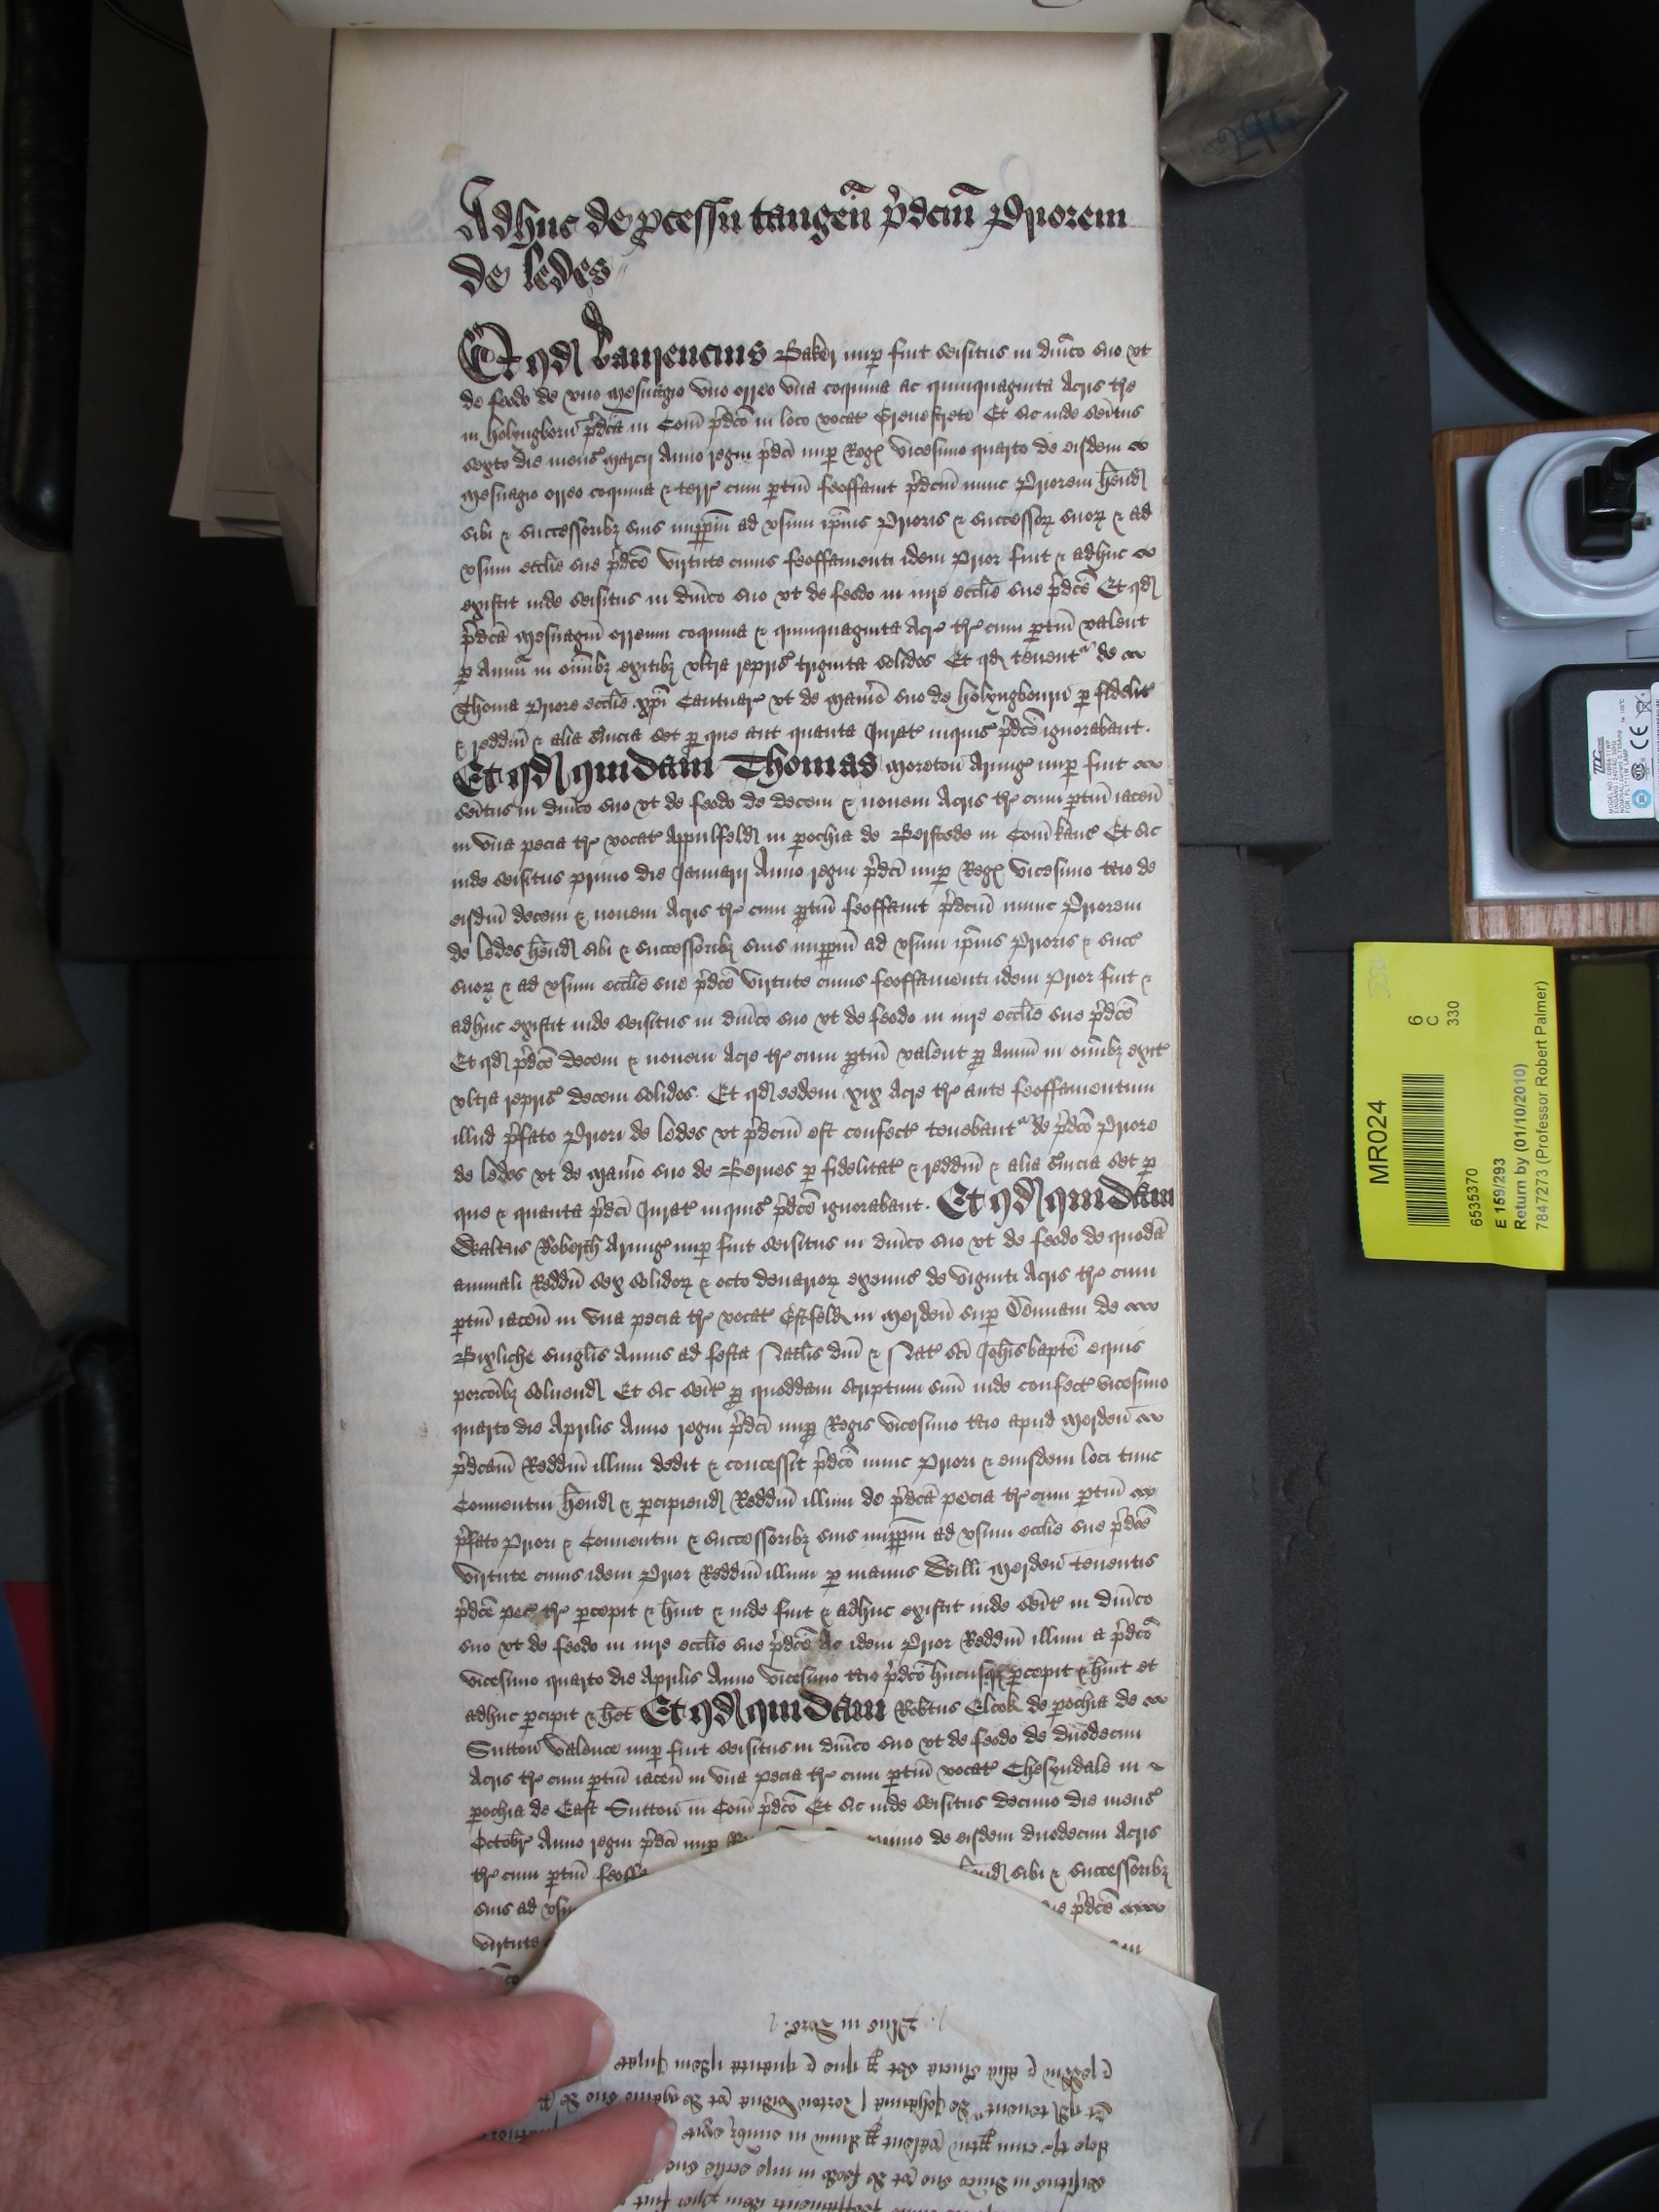 Adhuc de pcessu tangen̄ p̄dcm̄ Priorem
de Ledes
Et qd̛ Laurencius Baker nup̱ fuit seisitus in dn̄ico suo vt
de feodo de vno mesuagio vno orreo vna coquina ac quinquaginta Acris t̄re
in holyngborn̄ p̄dc̄a in Com̄ p̄dc̄o in loco vocat̛ Grenestrete Et sic inde seit̄us
sexto die mens̛ Marcij Anno regni p̄dc̄i nup̱ Reg̛ vicesimo quarto de eisdem
mesuagio orreo coquina & terr̛ cum p̱tin̄ feoffauit p̄dcm̄ nunc Priorem h̄end̛
sibi & Successoribȝ suis imp̱p̱m̄ ad vsum ip̄ius Prioris & Successoꝝ suoꝝ & ad
vsum ecctie sue p̄dc̄e virtute cuius feoffamenti idem Prior fuit & adhuc
existit inde seisitus in dn̄ico suo vt de feodo in iure ecctie sue p̄dc̄e Et qd̛
p̄dc̄a mesuagiu̅ orreum coquina & quinquaginta Acr̛ t̄re cum p̱tin̄ valent
p̱ Annu̅ in om̄ibȝ exitibȝ vltra repris̛ triginta solidos Et qd̛ tenent̛ de
Thoma Priore ecctie xp̄i Cantuar̛ vt de Man̄io suo de holyngbourn̄ p̱ fidelit̛
& reddm̄ & alia s̄uicia set p̱ que aut quanta Jurat̛ inquis̛ p̄dc̄e ignorabant.
Et qd̛ quidam Thomas Moreton Armig̛ nup̱ fuit
seit̄us in dn̄ico suo vt de feodo de decem & nouem Acris t̄re cum p̱tin̄ iacen̄
in vna pecia t̄re vocat̛ Appulfeld̛ in p̱ochia de Berstede in Com̄ kanc̛ Et sic
inde seisitus primo die Januarij Anno regni p̄dc̄i nup̱ Reg̛ vicesimo t̄cio de
eisdm̄ decem & nouem Acris t̄re cum p̱tin̄ feoffauit p̄dcm̄ nunc Priorem
de Ledes h̄end̛ sibi & Successoribȝ suis imp̱p̱m̄ ad vsum ip̄ius Prioris & succ̛
suoꝝ & ad vsum ecctie sue p̄dc̄e virtute cuius feoffamenti idem Prior fuit &
adhuc existit inde seisitus in dn̄ico suo vt de feodo in iure ecctie sue p̄dc̄e
Et qd̛ p̄dc̄e decem & nouem Acre t̄re cum p̱tin̄ valent p̱ Annu̅ in om̄ibȝ exit̛
vltra repris̛ decem solidos. Et qd̛ eedem xix Acre t̄re ante feoffamentum
illud p̄fato Priori de Ledes vt p̄dcm̄ est confect̛ tenebant̛ de p̄dc̄o Priore
de Ledes vt de Man̄io suo de Bernes p̱ fidelitat̛ & reddm̄ & alia s̄uicia set p̱
que & quanta p̄dc̄i Jurat̛ inquis̛ p̄dc̄e ignorabant. Et qd̛ quidam
Walt̄us Roberth̄ Armig̛ nup̱ fuit seisitus in dn̄ico suo vt de feodo de quodā
annuali Reddm̄ sex solidoꝝ & octo denarioꝝ exeunt̛ de viginti Acris t̄re cum
p̱tin̄ iacen̄ in vna pecia t̄re vocat̛ Estfeld̛ in Merden̄ sup̱ Dennam de
Bixliche singlis Annis ad festa Natlis dn̄i & Nat̛ sc̄i Joh̄is bapt̄e equis
porcōibȝ soluend̛ Et sic seit̛ p̱ quoddam scriptum suu̅ inde confect̛ vicesimo
quarto die Aprilis Anno regni p̄dc̄i nup̱ Regis vicesimo t̄cio apud Merden̄
p̄dcam̄ Reddm̄ illum dedit & concessit p̄dc̄o nunc Priori & eiusdem loci tunc
Conuentui h̄end̛ & p̱cipiend̛ Reddm̄ illum de p̄dc̄a pecia t̄re cum p̱tin̄
p̄fato Priori & Conuentui & Successoribȝ suis imp̱p̱m̄ ad vsum ecctie sue p̄dc̄e
virtute cuius idem Prior Reddm̄ illum p̱ manus Willi Merden̄ tenentis
p̄dc̄e pec̛ t̄re p̱cepit & h̄uit & inde fuit & adhuc existit inde seit̛ in dn̄ico
suo vt de feodo in iure ecctie sue p̄dc̄e Ac idem Prior Reddm̄ illum a p̄dc̄o
vicesimo quarto die Aprilis Anno vicesimo t̄cio p̄dc̄o hucusqȝ p̱cepit & h̄uit et
adhuc p̱cipit & h̄et Et qd̛ quidam Robtus Elcok de p̱ochia de
Sutton̄ valence nup̱ fuit seisitus in dn̄ico suo vt de feodo de duodecim
Acris t̄re cum p̱tin̄ iacen̄ in vna pecia t̄re cum p̱tin̄ vocat̛ Chesyndale in
p̱ochia de East Sutton̄ in Com̄ p̄dc̄o Et sic inde seisitus decimo die mens̛
Octobr̛ Anno regni p̄dc̄i nup̱ de eisdem duodecim Acris
t̄re cum p̱tin̄ sibi & Successoribȝ
suis ad p̄dc̄e
virtute
MR024
6
C
330
6535370
E 159/293
Return by (01/10/2010)
7847273 (Professor Robert Palmer)